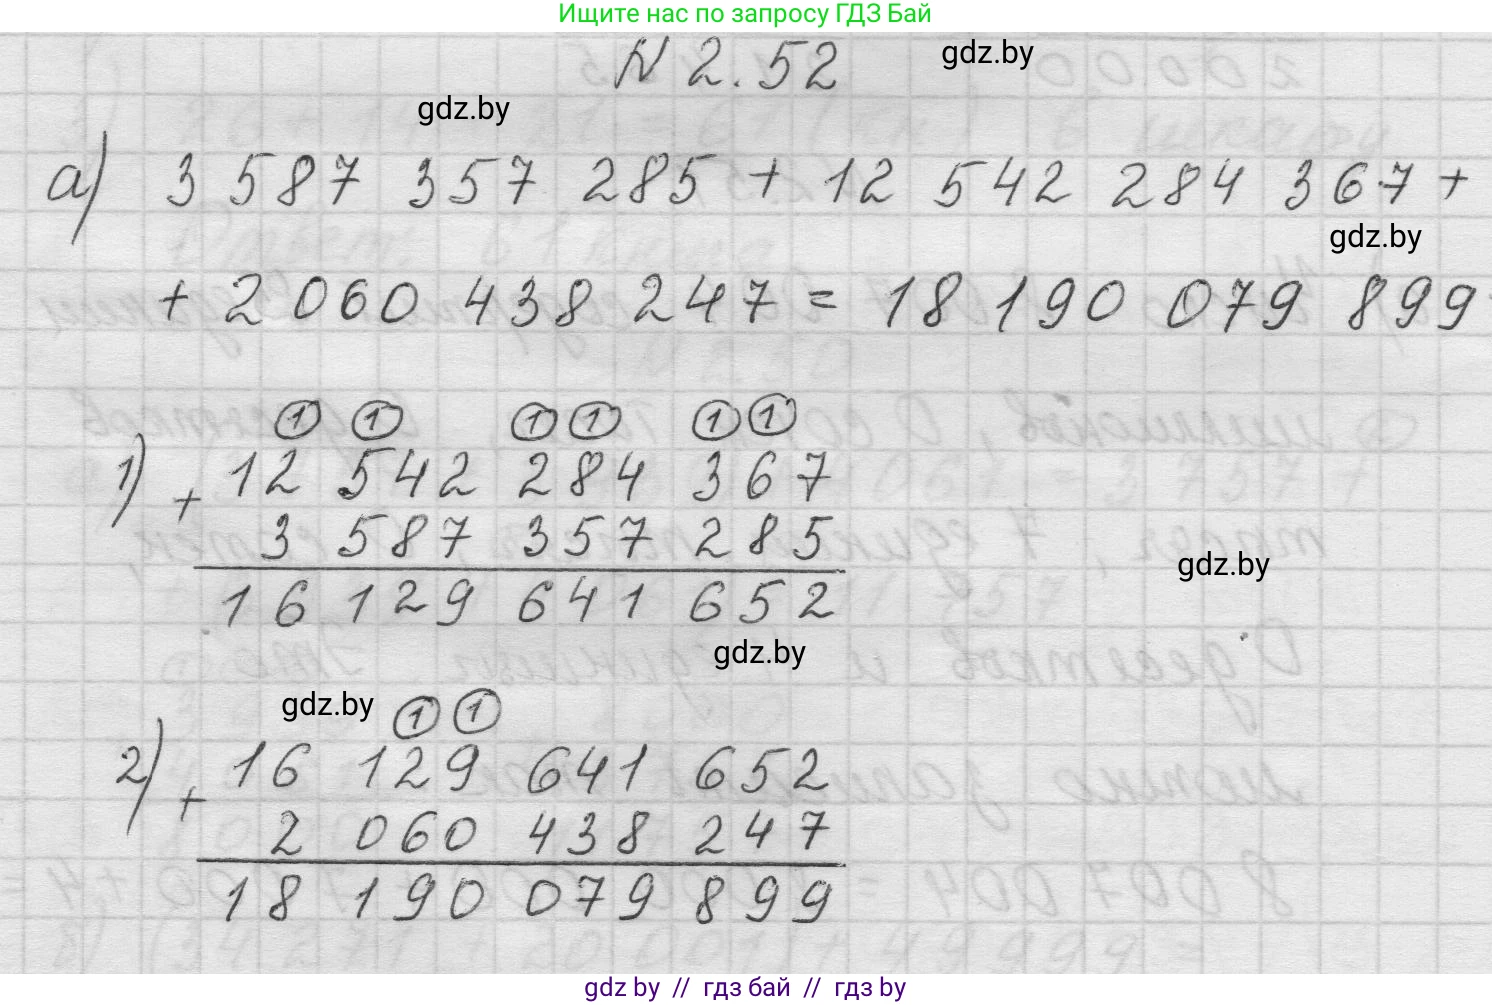 Ищите нас по запросу ГДЗ Бай
N 2.52
gdz.by
gdz.by
а) 3 587 357 285 + 12 542 284 367 +
gdz.by
+ 2 060 438 247 = 18 190 079 899
1 1 1 1 1 1
1) + 12 542 284 367
3 587 357 285
gdz.by
16 129 641 652
gdz.by
gdz.by
1 1
2) + 16 129 641 652
2 060 438 247
18 190 079 899
gdz.by // гдз бай // гдз by